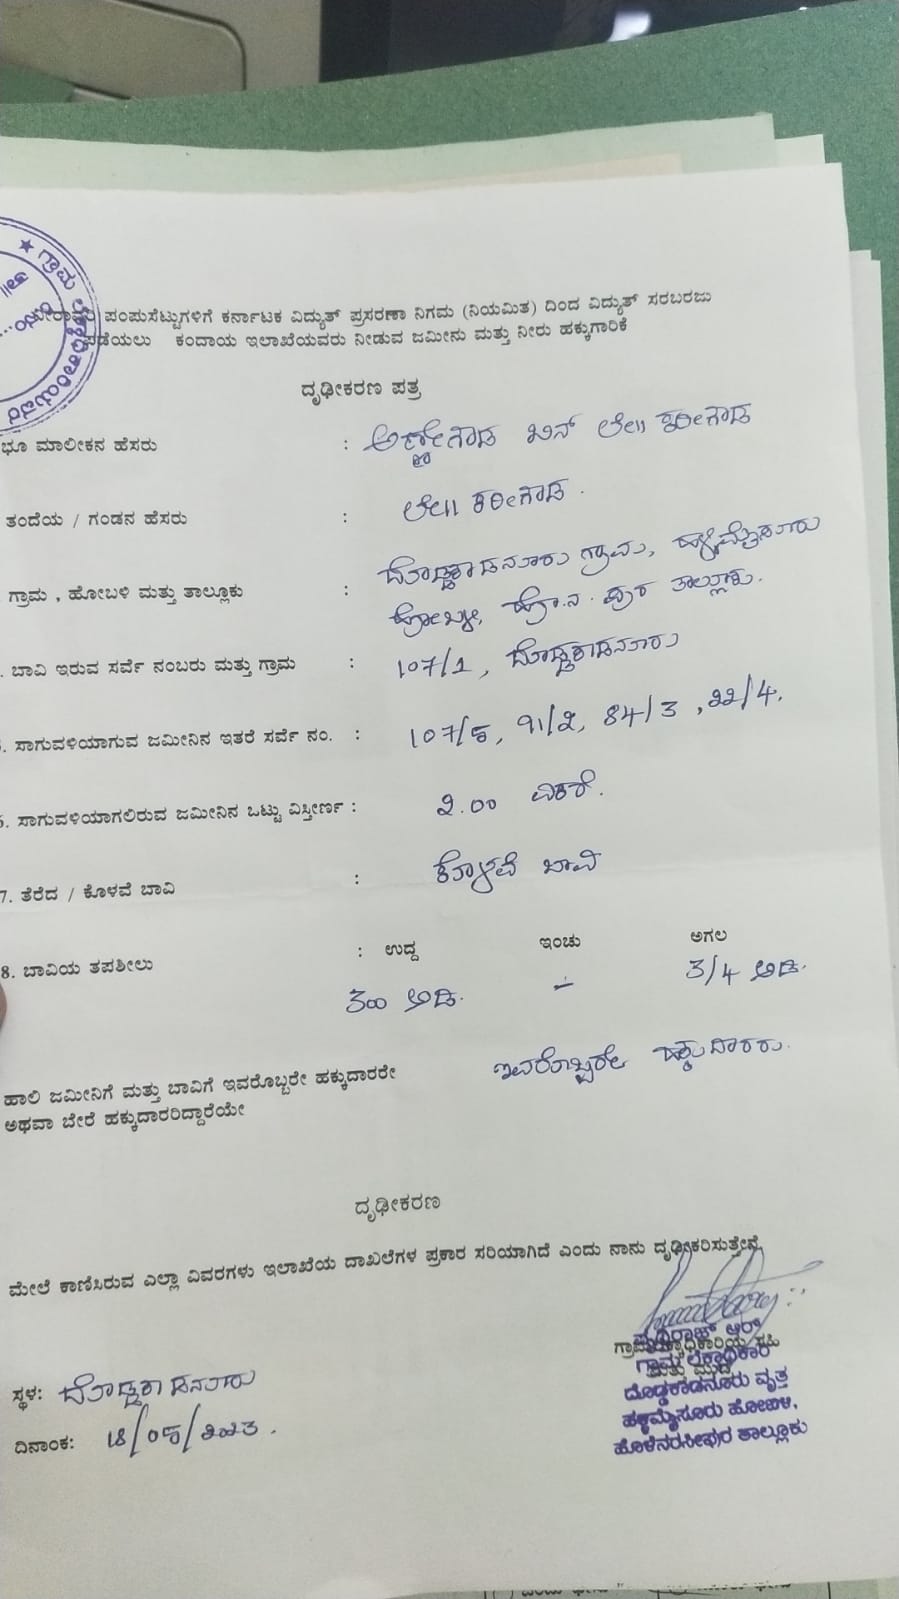 ನೀರಾವರಿ ಪಂಪುಸೆಟ್ಟುಗಳಿಗೆ ಕರ್ನಾಟಕ ವಿದ್ಯುತ್ ಪ್ರಸರಣಾ ನಿಗಮ (ನಿಯಮಿತ) ದಿಂದ ವಿದ್ಯುತ್ ಸರಬರಜು
ಪಡೆಯಲು ಕಂದಾಯ ಇಲಾಖೆಯವರು ನೀಡುವ ಜಮೀನು ಮತ್ತು ನೀರು ಹಕ್ಕುಗಾರಿಕೆ
ದೃಢೀಕರಣ ಪತ್ರ
ಭೂ ಮಾಲೀಕನ ಹೆಸರು : ಅಣ್ಣೇಗೌಡ ಬಿನ್ ಲೇ|| ಕರೀಗೌಡ
ತಂದೆಯ / ಗಂಡನ ಹೆಸರು : ಲೇ|| ಕರೀಗೌಡ.
ಗ್ರಾಮ , ಹೋಬಳಿ ಮತ್ತು ತಾಲ್ಲೂಕು : ದೊಡ್ಡಕಾಡನೂರು ಗ್ರಾಮ, ಹಳ್ಳಿಮೈಸೂರು
ಹೋಬಳಿ, ಹೊ.ನ.ಪುರ ತಾಲ್ಲೂಕು.
. ಬಾವಿ ಇರುವ ಸರ್ವೆ ನಂಬರು ಮತ್ತು ಗ್ರಾಮ : 107/1, ದೊಡ್ಡಕಾಡನೂರು
. ಸಾಗುವಳಿಯಾಗುವ ಜಮೀನಿನ ಇತರೆ ಸರ್ವೆ ನಂ. : 107/5, 91/2, 84/3, 22/4.
6. ಸಾಗುವಳಿಯಾಗಲಿರುವ ಜಮೀನಿನ ಒಟ್ಟು ವಿಸ್ತೀರ್ಣ : 2.00 ಎಕರೆ.
7. ತೆರೆದ / ಕೊಳವೆ ಬಾವಿ : ಕೊಳವೆ ಬಾವಿ
8. ಬಾವಿಯ ತಪಶೀಲು : ಉದ್ದ ಇಂಚು ಅಗಲ
300 ಅಡಿ. – 3/4 ಅಡಿ.
ಹಾಲಿ ಜಮೀನಿಗೆ ಮತ್ತು ಬಾವಿಗೆ ಇವರೊಬ್ಬರೇ ಹಕ್ಕುದಾರರೇ ಇವರೊಬ್ಬರೇ ಹಕ್ಕುದಾರರು.
ಅಥವಾ ಬೇರೆ ಹಕ್ಕುದಾರರಿದ್ದಾರೆಯೇ
ದೃಢೀಕರಣ
ಮೇಲೆ ಕಾಣಿಸಿರುವ ಎಲ್ಲಾ ವಿವರಗಳು ಇಲಾಖೆಯ ದಾಖಲೆಗಳ ಪ್ರಕಾರ ಸರಿಯಾಗಿದೆ ಎಂದು ನಾನು ದೃಢೀಕರಿಸುತ್ತೇನೆ
ಗ್ರಾಮ ಲೆಕ್ಕಾಧಿಕಾರಿ
ದೊಡ್ಡಕಾಡನೂರು ವೃತ್ತ
ಹಳ್ಳಿಮೈಸೂರು ಹೋಬಳಿ,
ಹೊಳೆನರಸೀಪುರ ತಾಲ್ಲೂಕು
ಸ್ಥಳ: ದೊಡ್ಡಕಾಡನೂರು
ದಿನಾಂಕ: 18/05/2023.